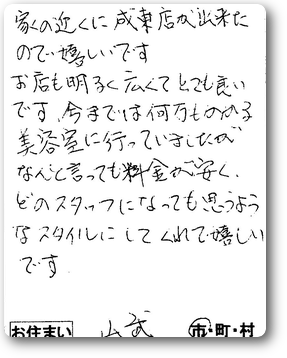 家の近くに成東店が出来た
ので嬉しいです
お店も明るく広くてとても良い
です。今までは何万もかかる
美容室に行っていましたが
なんと言っても料金が安く、
どのスタッフになっても思うよう
なスタイルにしてくれて嬉しい
です。
お住まい 山武 市・町・村